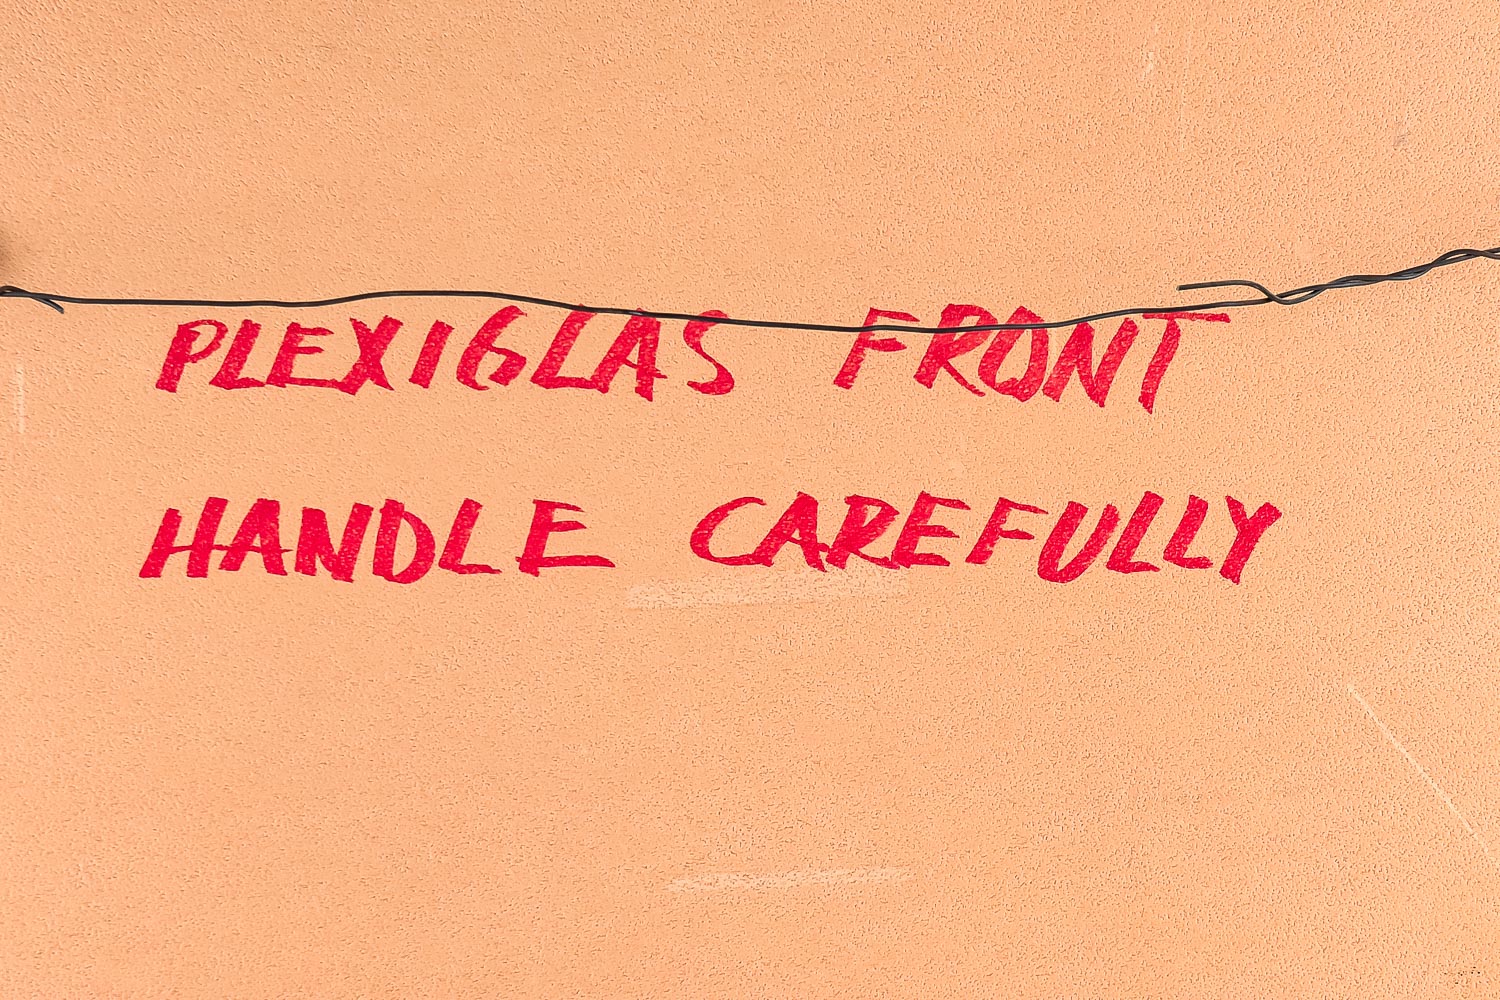 PLEXIGLAS FRONT
HANDLE CAREFULLY